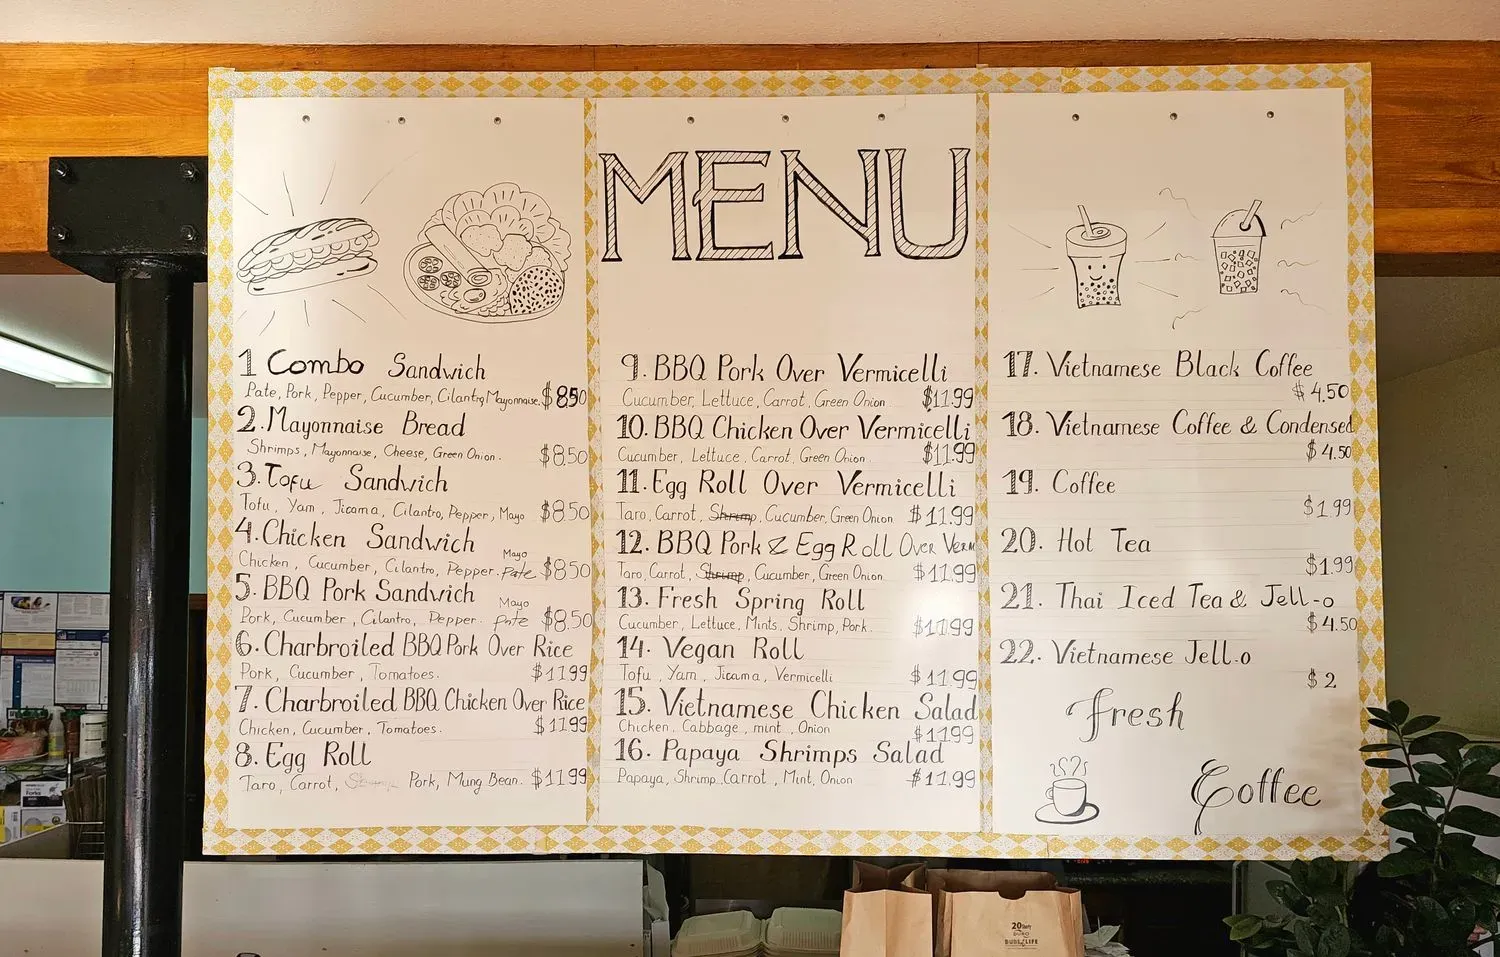 MENU
1 Combo Sandwich
Pate, Pork, Pepper, Cucumber, Cilantro, Mayonnaise. $8.50
2. Mayonnaise Bread
Shrimps, Mayonnaise, Cheese, Green Onion. $8.50
3. Tofu Sandwich
Tofu, Yam, Jicama, Cilantro, Pepper, Mayo $8.50
4. Chicken Sandwich
Mayo
Chicken, Cucumber, Cilantro, Pepper. Pate $8.50
5. BBQ Pork Sandwich
Mayo
Pork, Cucumber, Cilantro, Pepper. Pate $8.50
6. Charbroiled BBQ Pork Over Rice
Pork, Cucumber, Tomatoes. $11.99
7. Charbroiled BBQ Chicken Over Rice
Chicken, Cucumber, Tomatoes. $11.99
8. Egg Roll
Taro, Carrot, Pork, Mung Bean. $11.99
9. BBQ Pork Over Vermicelli
Cucumber, Lettuce, Carrot, Green Onion $11.99
10. BBQ Chicken Over Vermicelli
Cucumber, Lettuce, Carrot, Green Onion. $11.99
11. Egg Roll Over Vermicelli
Taro, Carrot, Shrimp, Cucumber, Green Onion $11.99
12. BBQ Pork & Egg Roll Over Verm
Taro, Carrot, Shrimp, Cucumber, Green Onion $11.99
13. Fresh Spring Roll
Cucumber, Lettuce, Mints, Shrimp, Pork. $11.99
14. Vegan Roll
Tofu, Yam, Jicama, Vermicelli $11.99
15. Vietnamese Chicken Salad
Chicken, Cabbage, mint, Onion
$11.99
16. Papaya Shrimps Salad
Papaya, Shrimp, Carrot, Mint, Onion $11.99
17. Vietnamese Black Coffee
$4.50
18. Vietnamese Coffee & Condensed
$4.50
19. Coffee
$1.99
20. Hot Tea
$1.99
21. Thai Iced Tea & Jell-o
$4.50
22. Vietnamese Jell-o
$2
Fresh
Coffee